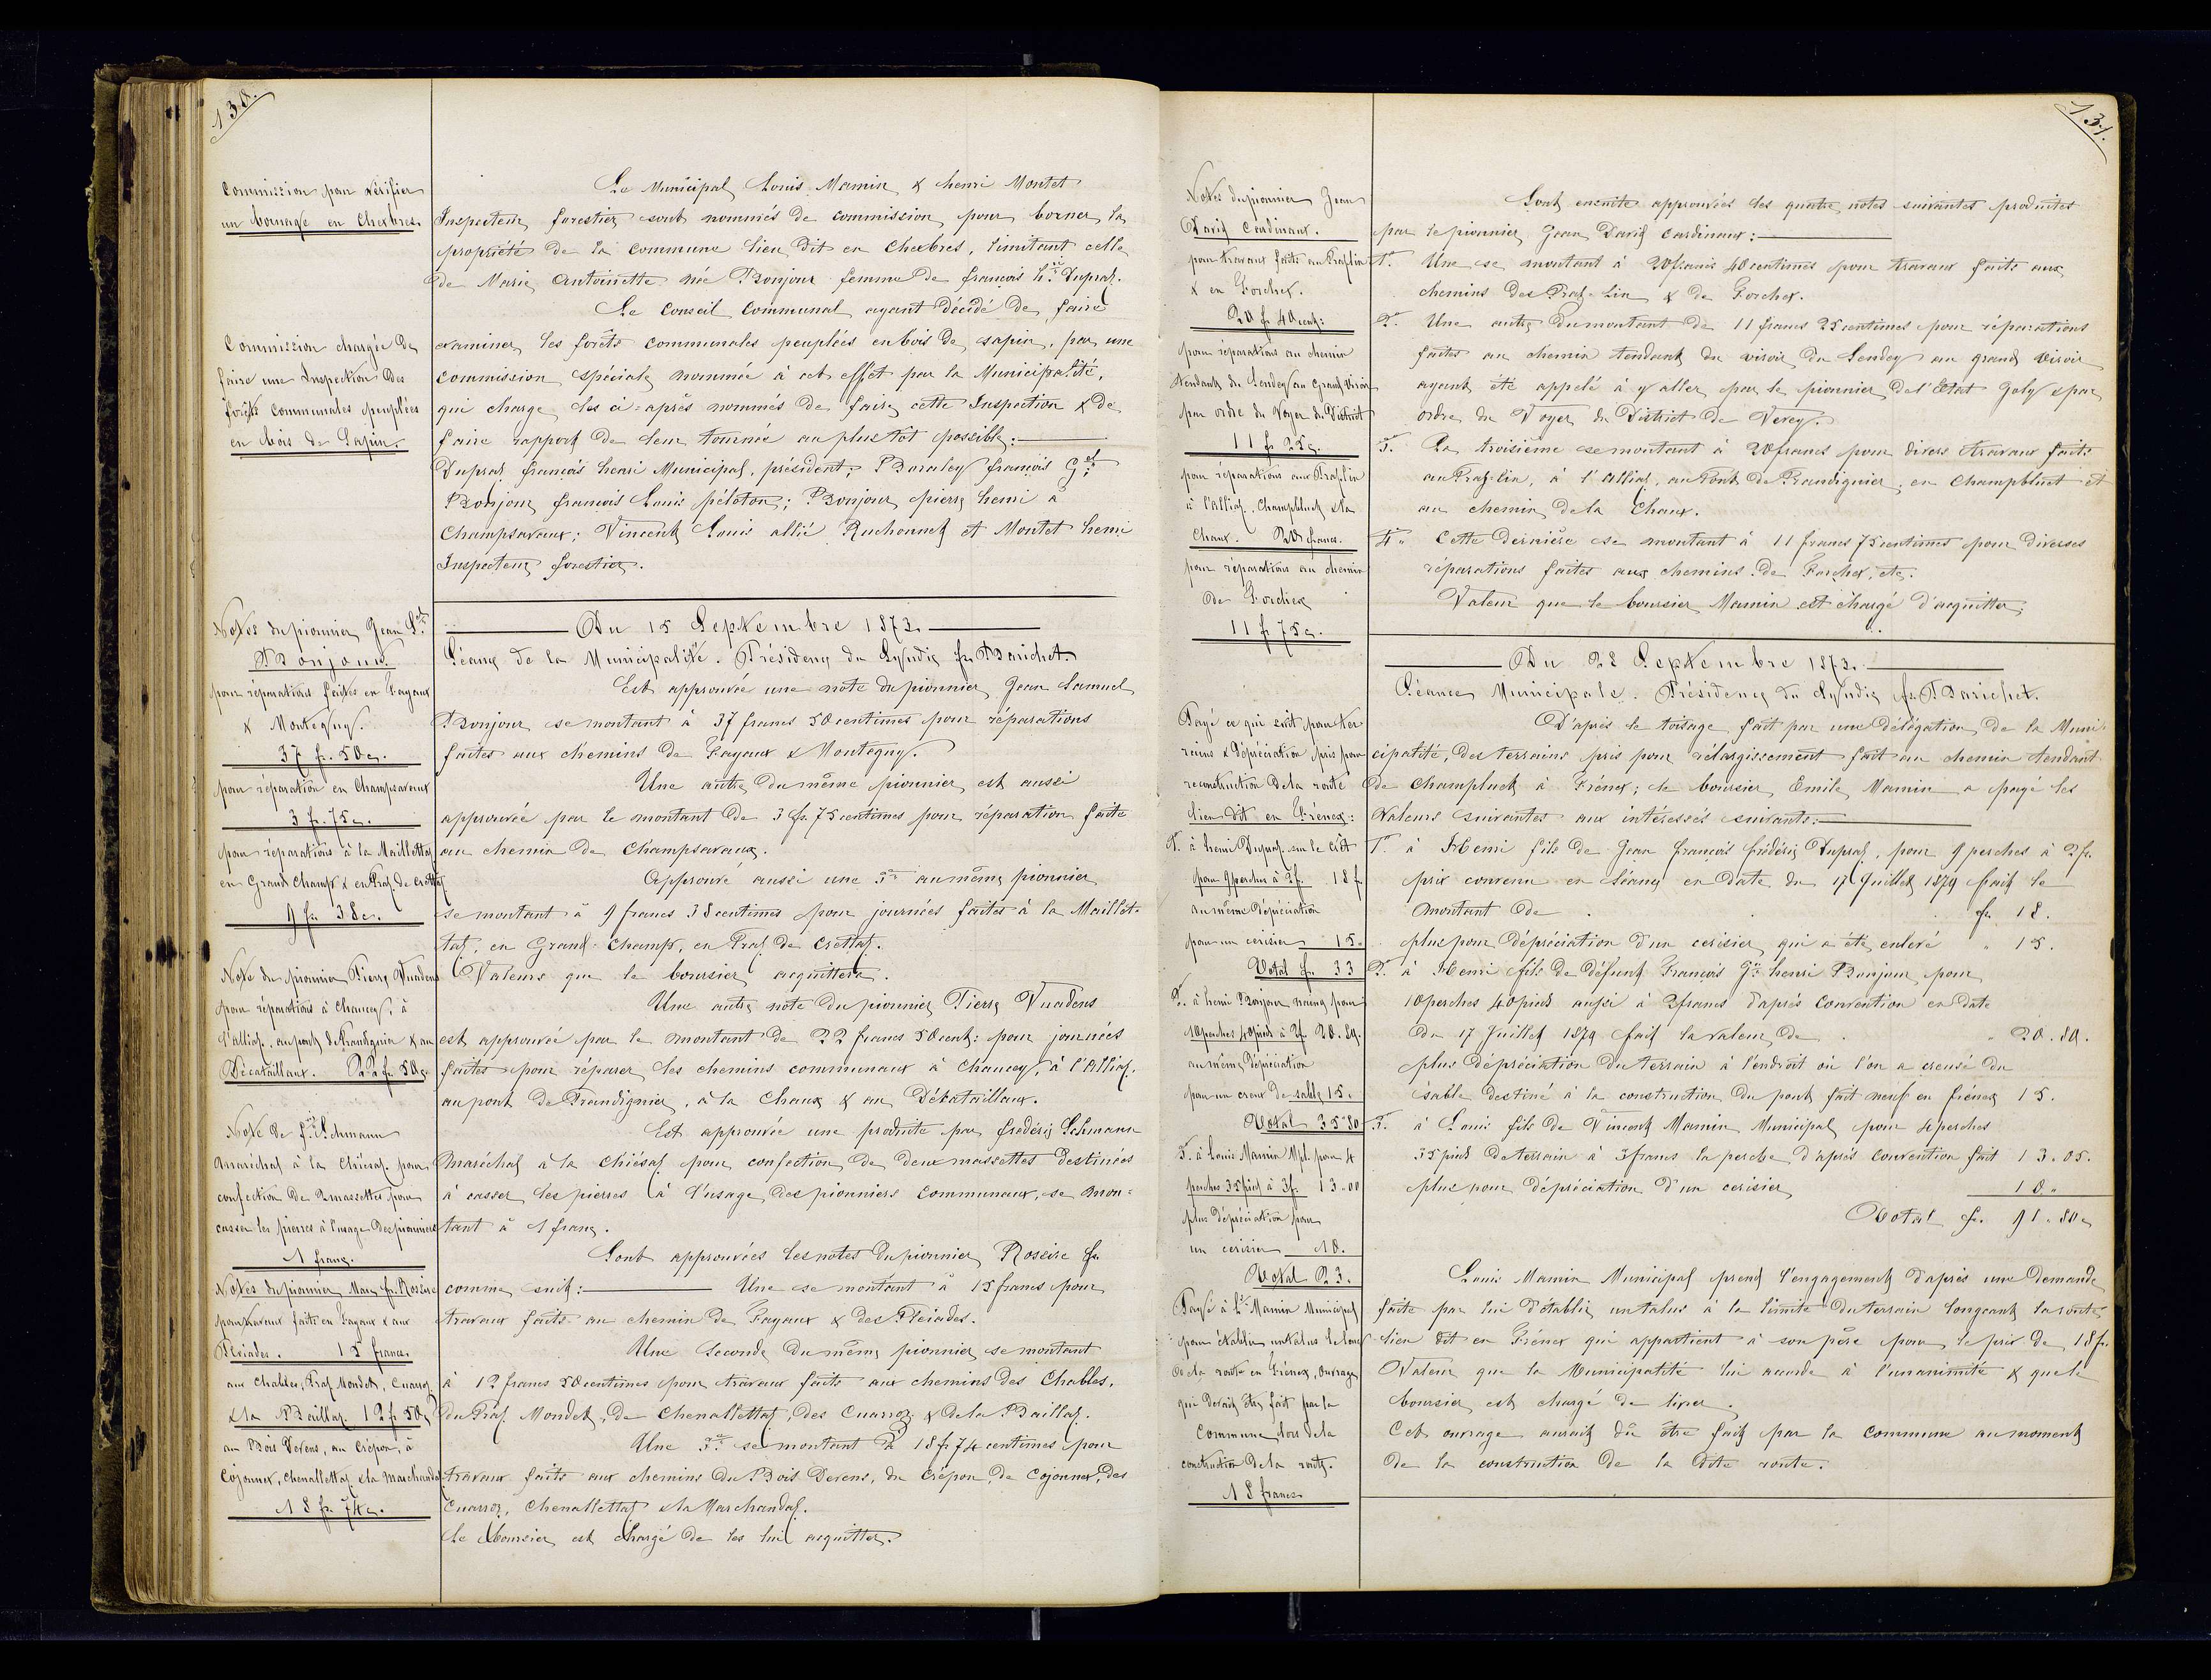 130.
Commission pour vérifier
un bornage en Chexbres.
Le Municipal Louis Mamin & henri Montet
Inspecteur forestier sont nommés de commission pour borner la
propriété de la commune lieu dit en Chexbres, limitant celle
de Marie Antoinette née Bonjour femme de françois hri Dupraz.
Commission chargée de
faire une Inspection des
forêts communales peuplées
en bois de Sapin.
Le Conseil Communal ayant décidé de faire
examiner les forêts communales peuplées en bois de sapin, par une
commission spéciale nommée à cet effet par la Municipalité,
qui charge les ci-après nommés de faire cette Inspection & de
faire rapport de leur tournée au plus tôt possible:
Dupraz françois henri Municipal, président;
françois
Bonjour francois Louis péloton; Bonjour pierre henri à
Champsavaux; Vincent Louis allié Ruchonnet et Montet henri
Inspecteur forestier.
Du 15 Septembre 1873.
Séance de la Municipalité. Présidence du Syndic fs Barichet.
Notes du pionnier Jean Sel
Bonjour
pour réparations faites en Fayaux
& Monteguy.
37 fr. 50 c.
Est approuvée une note du pionnier Jean Samuel
Bonjour se montant à 37 francs 50 centimes pour réparations
faites aux chemins de Fayaux & Monteguy.
pour réparation en Champsavaux
3 fr. 75 c.
Une autre du même pionnier est aussi
approuvée par le montant de 3 fr. 75 centimes pour réparation faite
au chemin de Champsavaux.
pour réparations à la Maillettaz
en Grand Champ & en Praz de Crettaz
9 fr. 38 c.
Approuvé aussi une 3me au même pionnier
se montant à 9 francs 38 centimes pour journées faites à la Maillet-
taz, en Grand-Champ, en Praz de Crettaz.
Valeurs que le boursier acquittera.
Note du pionnier Pierre Vuadens
pour réparations à Chaucey, à
l'alliaz, au pont de Prantignier & au
Décataillaux. 22 fr. 50 c.
Une autre note du pionnier Pierre Vuadens
est approuvée par le montant de 22 francs 50 cent: pour journées
faites pour réparer les chemins communaux à Chaucey, à l'Alliaz,
au pont de Prandignier, à la Chaux & au Décataillaux.
Note de fric Lehmann
maréchal à la Chiésaz pour
confection de 2 massettes pour
casser les pierres à l'usage des pionniers
1 franc.
Est approuvée une produite par frédéric Lehmann
maréchal à la Chiésaz pour confection de deux massettes destinées
à casser les pierres à l'usage des pionniers communaux, se mon-
tant à 1 franc.
Notes du pionnier Marc fs Roseire
pour travaux faits en Fayaux & aux
Pleiades. 15 francs.
Sont approuvées les notes du pionnier Roseire fs
comme suit: Une se montant à 15 francs pour
travaux faits au chemin de Fayaux & des Pleiades.
aux Chables, Praz Mondet, Cuarroz
& la Baillaz. 12 fr 50 c
Une Seconde du même pionnier se montant
à 12 francs 50 centimes pour travaux faits aux chemins des Chables,
du Praz Mondet, de Chenallettaz, des Cuarroz & de la Baillaz.
au Bois Devens, au Crépon, à
Cojonnex, Chenallettaz & la Marchandaz
18 fr. 74 c.
Une 3me se montant à 18 fr 74 centimes pour
travaux faits aux chemins du Bois Devens, du Crépon, de Cojonnex, des
Cuarroz, Chenallettaz & la Marchandaz.
Le boursier est chargé de les lui acquitter.
131.
Notes du pionnier Jean
David Cardinaux.
pour travaux faits au Praz-lin
& en Forchex.
20 fr 40 cent:
Sont ensuite approuvées les quatre notes suivantes produites
par le pionnier Jean David Cardinaux:
1o. Une se montant à 20 francs 40 centimes pour travaux faits aux
chemins des Praz-Lin & de Forchex.
pour réparations au chemin
tendant du Sendey au grand Viroir
par ordre du Voyer du District
11 fr 25 c.
2o. Une autre du montant de 11 francs 25 centimes pour réparations
faites au chemin tendant du viroir du Sendey au grand viroir
ayant été appelé à y aller par le pionnier de l'Etat Joly & par
ordre du Voyer du District de Vevey.
pour réparations aux Praz-lin
à l'alliaz, Champbluet & la
Chaux. 20 francs.
3o. La troisième se montant à 20 francs pour divers travaux faits
au Praz-lin, à l'Alliaz, au Pont de Prandignier, en Champbluet et
au chemin de la Chaux.
pour réparations au chemin
de Forchex
11 fr 75 c.
4o. Cette dernière se montant à 11 francs 75 centimes pour diverses
réparations faites aux chemins de Forchex, etc.
Valeur que le boursier Mamin est chargé d'acquitter.
Du 22 Septembre 1873.
Séance Municipale. Présidence du Syndic fs Barichet.
Payé ce qui suit pour ter-
rains & dépréciation pris pour
reconstruction de la route
lieu dit en Frénex:
D'après le toisage fait par une délégation de la Muni-
cipalité, des terrains pris pour rélargissement fait au chemin tendant
de Champluet à Frénex; le boursier Emile Mamin a payé les
Valeurs suivantes aux intéressés suivants:
1o. à henri Dupraz sur le crêt
pour 9 perches à 2 f. 18 f.
au même dépréciation
pour un cerisier 15.
Total fr. 33
1o. à Henri fils de Jean françois frédéric Dupraz, pour 9 perches à 2 fr.
prix convenu en séance en date du 17 Juillet 1879 fait le
montant de fr. 18.
plus pour dépréciation d'un cerisier qui a été enlevé " 15.
2o. à henri Bonjour neveu pour
10 perches 40 pieds à 2 f. 20.80.
au même dépréciation
pour un creux de sable 15.
Total 35"80
2o. à Henri fils de défunt François Jn henri Bonjour pour
10 perches 40 pieds aussi à 2 francs d'après convention en date
du 17 Juillet 1879 fait la valeur de " 20.80.
plus dépréciation du terrain à l'endroit où l'on a creusé du
sable destiné à la construction du pont fait neuf en frénex 15.
3o. à Louis Mamin Mpl. pour 4
perches 35 pieds à 3 f. 13.00
plus dépréciation pour
un cerisier 10.
Total 23.
3o. à Louis fils de Vincent Mamin Municipal pour 4 perches
35 pieds de terrain à 3 francs la perche d'après convention fait 13.05.
plus pour dépréciation d'un cerisier 10"
Total fr. 91.80 c
Payé à Ls Mamin Municipal
pour établir un talus le long
de la route en Frénex, ouvrage
qui devait être fait par la
Commune lors de la
construction de la route.
18 francs
Louis Mamin Municipal prend l'engagement d'après une demande
faite par lui d'établir un talus à la limite du terrain longeant la route
lieu dit en Frénex qui appartient à son père pour le prix de 18 fr.
Valeur que la Municipalité lui accorde à l'unanimité & que le
boursier est chargé de livrer.
Cet ouvrage aurait dû être fait par la commune au moment
de la construction de la dite route.